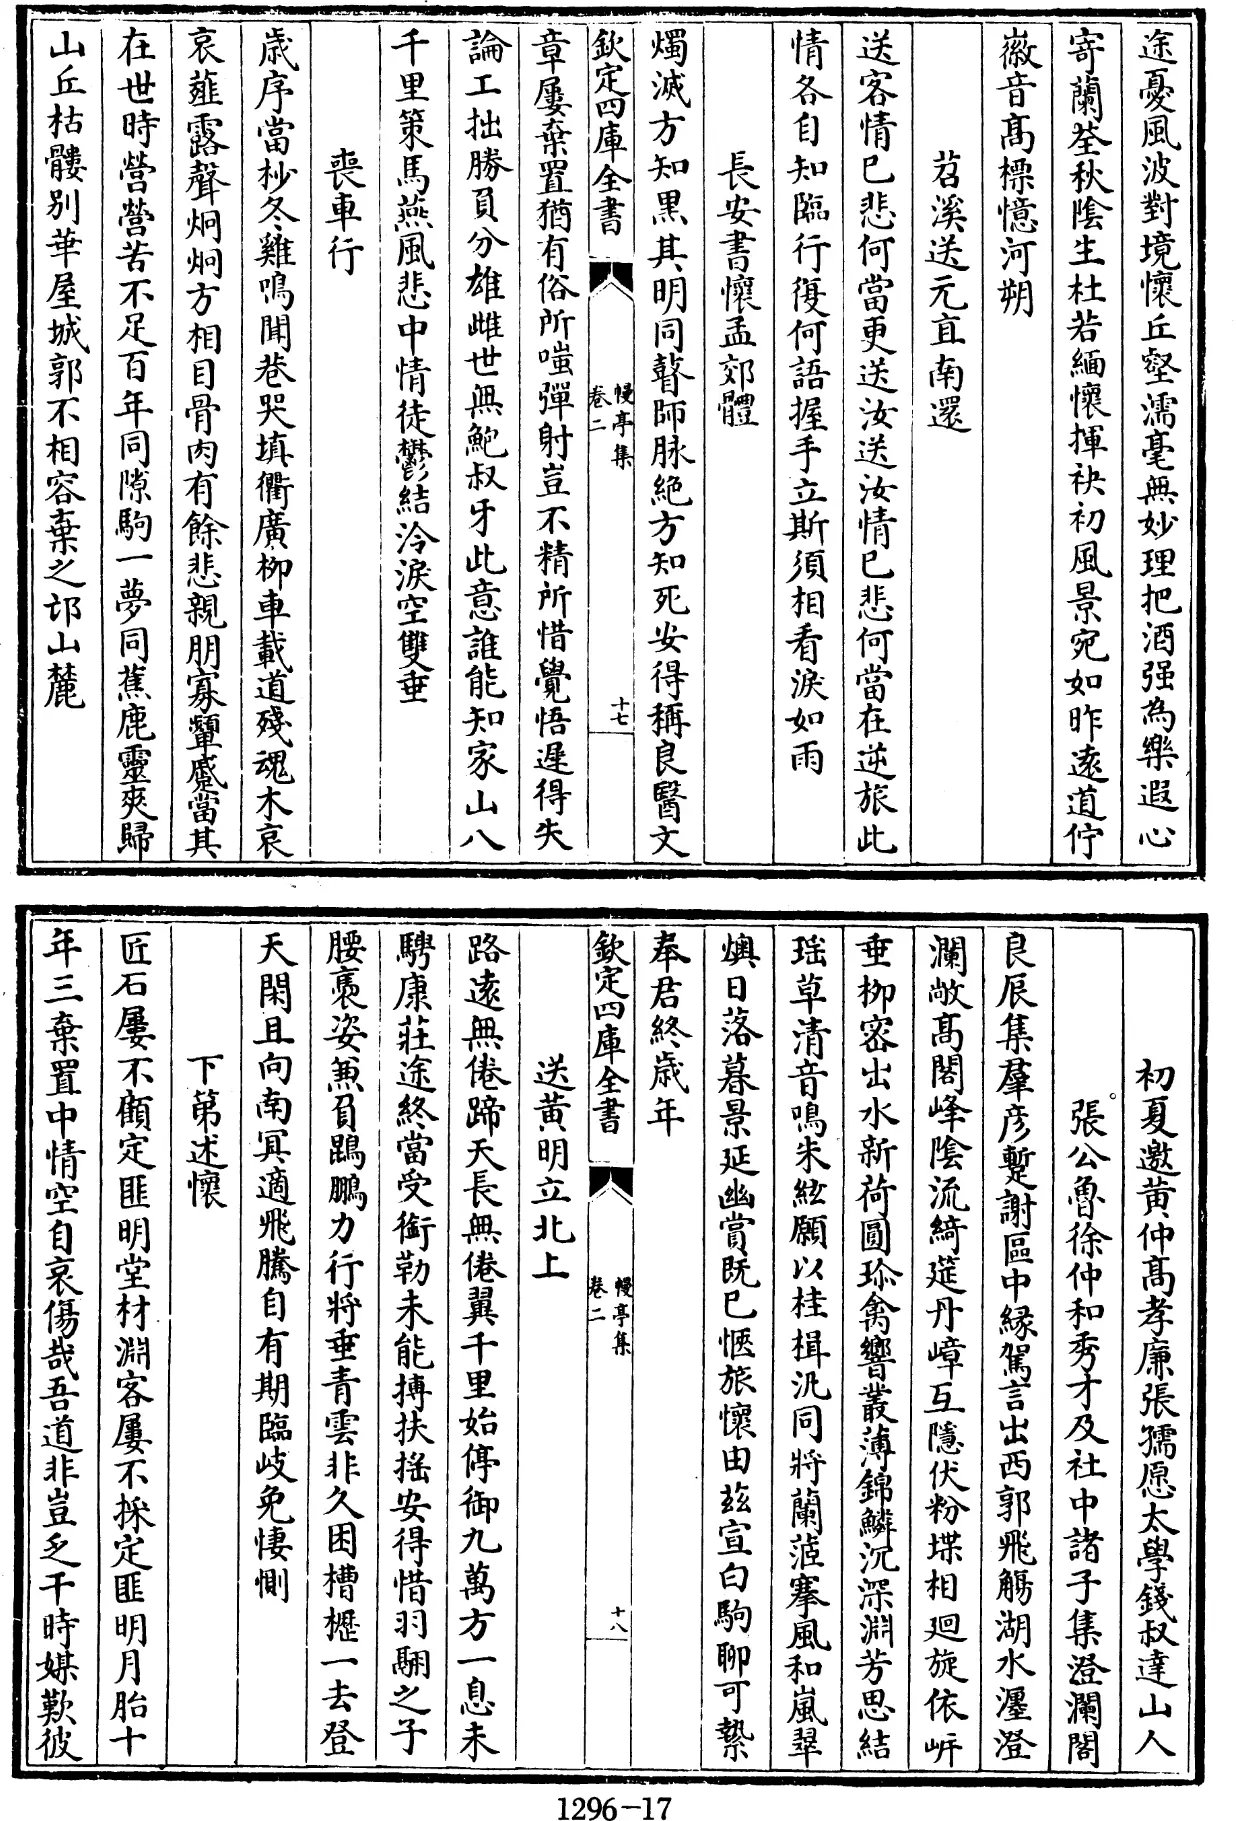 途憂風波對境懷丘壑濡毫無妙理把酒强為樂遐心
寄蘭荃秋隂生杜若緬懷揮袂初風景宛如昨逺道佇
徽音髙標憶河朔
苕溪送元直南還
送客情已悲何當更送汝送汝情已悲何當在逆旅此
情各自知臨行復何語握手立斯須相看淚如雨
長安書懷孟郊體
燭滅方知黒其明同瞽師脉絶方知死安得稱良醫文
欽定四庫全書
幔亭集
卷二
十七
章屢棄置猶有俗所嗤彈射豈不精所惜覺悟遲得失
論工拙勝負分雄雌世無鮑叔牙此意誰能知家山八
千里策馬燕風悲中情徒鬱結泠淚空雙垂
喪車行
歳序當杪冬雞鳴聞巷哭填衢廣栁車載道殘魂木哀
哀薤露聲炯炯方相目骨肉有餘悲親朋寡顰蹙當其
在世時營營苦不足百年同隙駒一夢同蕉鹿靈爽歸
山丘枯髏别華屋城郭不相容棄之邙山麓
初夏邀黄仲髙孝廉張孺愿太學錢叔達山人
張公魯徐仲和秀才及社中諸子集澄瀾閣
良辰集羣彦蹔謝區中縁駕言出西郭飛觴湖水濹澄
瀾敞髙閣峰陰流綺筵丹嶂互隱伏粉堞相廻旋依岍
垂栁密出水新荷圓珎禽響叢薄錦鱗沉深淵芳思結
瑶草清音鳴朱絃願以桂楫汎同將蘭茝搴風和嵐翠
燠日落暮景延幽賞既已愜旅懷由兹宣白駒聊可縶
奉君終歳年
欽定四庫全書
幔亭集
卷二
十八
送黄明立北上
路逺無倦蹄天長無倦翼千里始停御九萬方一息未
騁康莊途終當受銜勒未能摶扶摇安得惜羽翮之子
腰褭姿兼負鵾鵬力行將垂青雲非久困槽櫪一去登
天閑且向南冥適飛騰自有期臨岐免悽惻
下第述懷
匠石屢不顧定匪明堂材淵客屢不採定匪明月胎十
年三棄置中情空自哀傷哉吾道非豈乏干時媒歎彼
1296-17